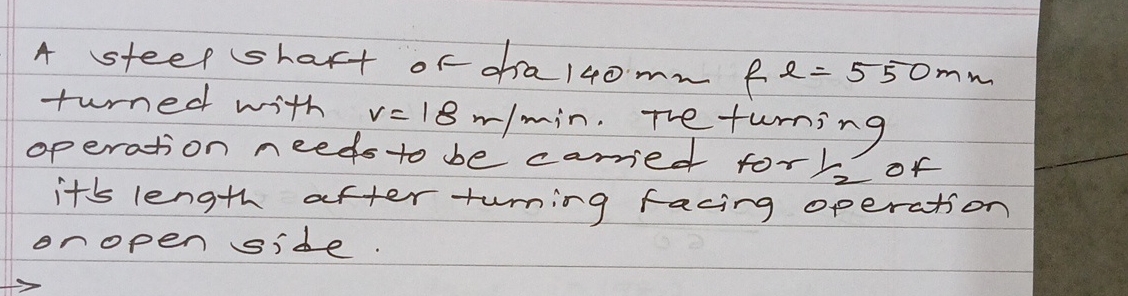 A steel shaft of dia 140 mm & l = 550mm
turned with v=18 m/min. The turning
operation needs to be carried for 1/2 of
it's length after turning facing operation
on open side.
→